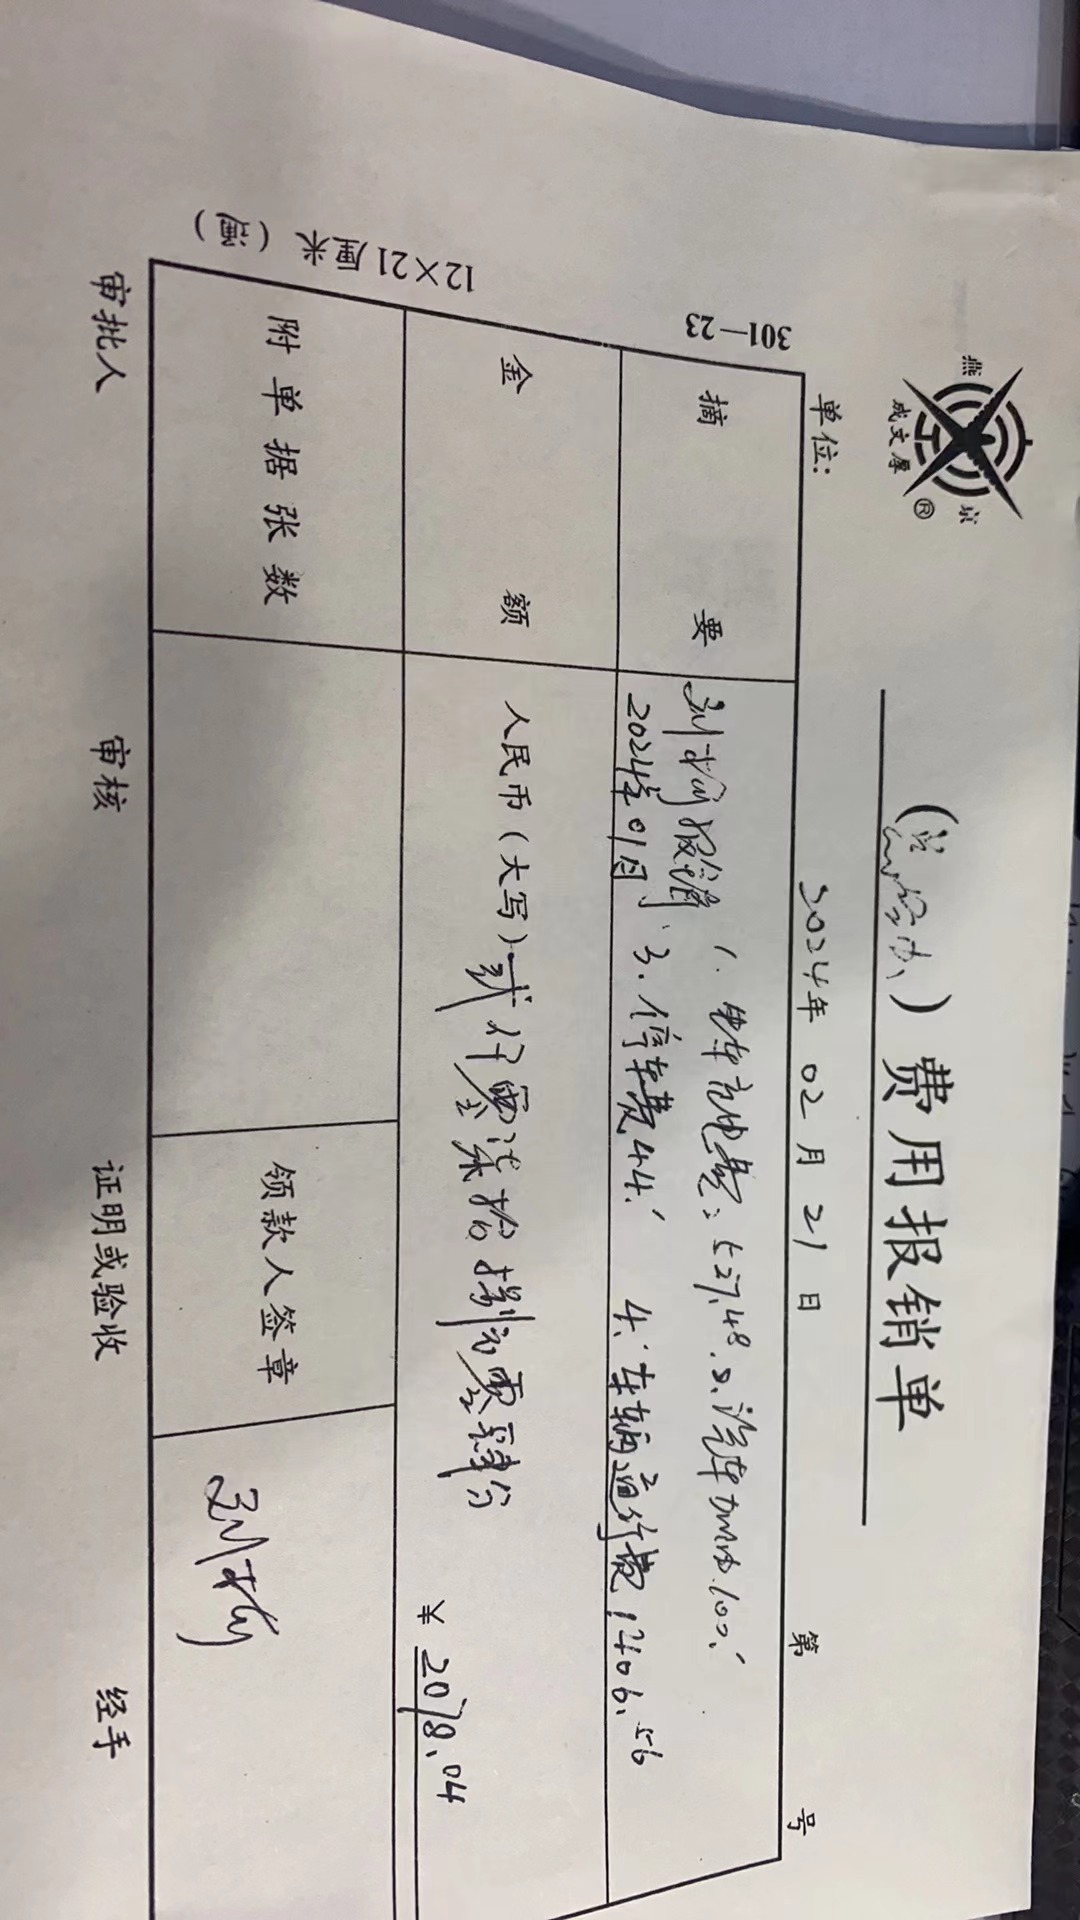 燕 京
成文厚 ®
（总经办）费用报销单
单位: 2024年 02月 21日 第 号
301—23
摘要 报销 1. 电车充电费: 527.48. 2. 汽车加油.100.
2024年01月 3. 停车费44. 4. 车辆通行费1406.56
金额 人民币（大写）贰仟零柒拾捌元零肆分 ¥ 2078.04
附单据张数 领款人签章
12×21厘米
审批人 审核 证明或验收 经手